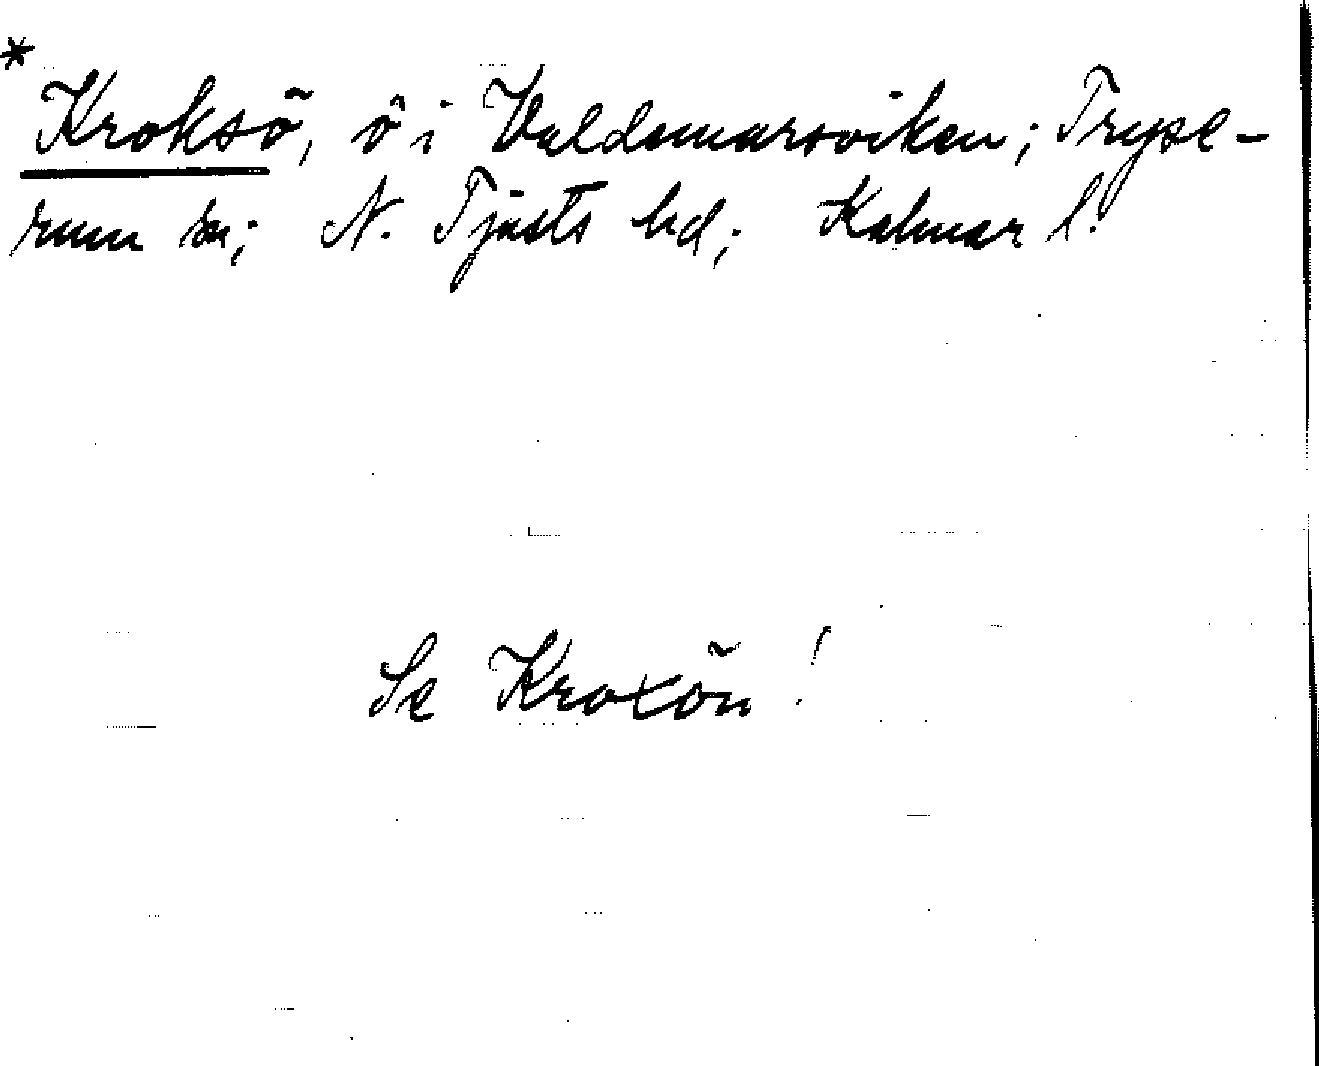 * Kroksö, ö i Valdemarsviken; Tryse-
rum sn; N. Tjusts hd; Kalmar l.
Se Kroxön!